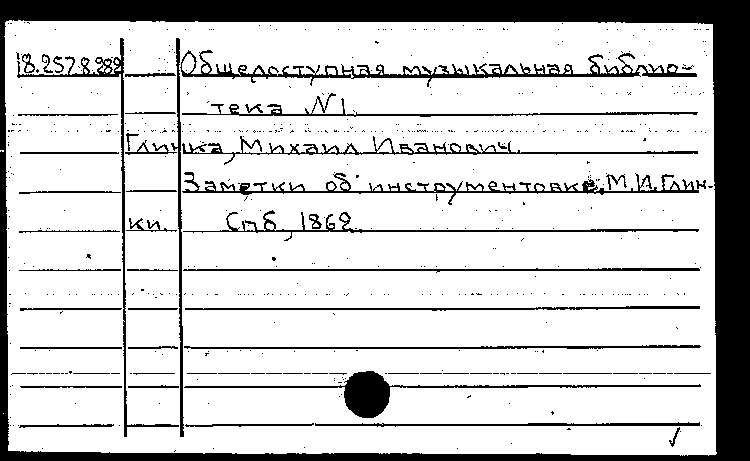 18.257.8.282 Общедоступная музыкальная библио-
тека N1.
Глинка, Михаил Иванович.
Заметки об инструментовке. М.И. Глин-
ки. Спб, 1862.